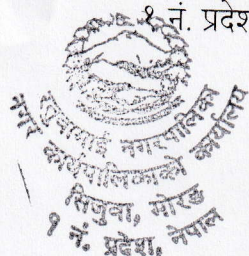 १ नं. प्रदेश
नगरपालिका
नगर कार्यपालिकाको कार्यालय
सिजुवा, मोरङ
१ नं. प्रदेश, नेपाल